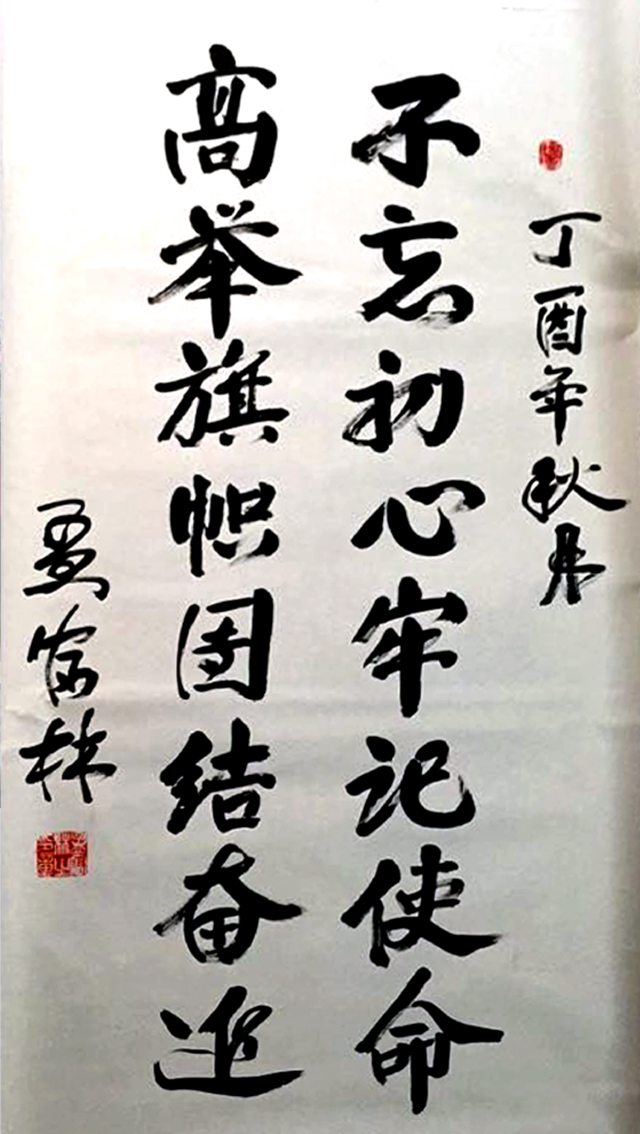 丁酉年秋月
不忘初心牢记使命
高举旗帜团结奋进
富林